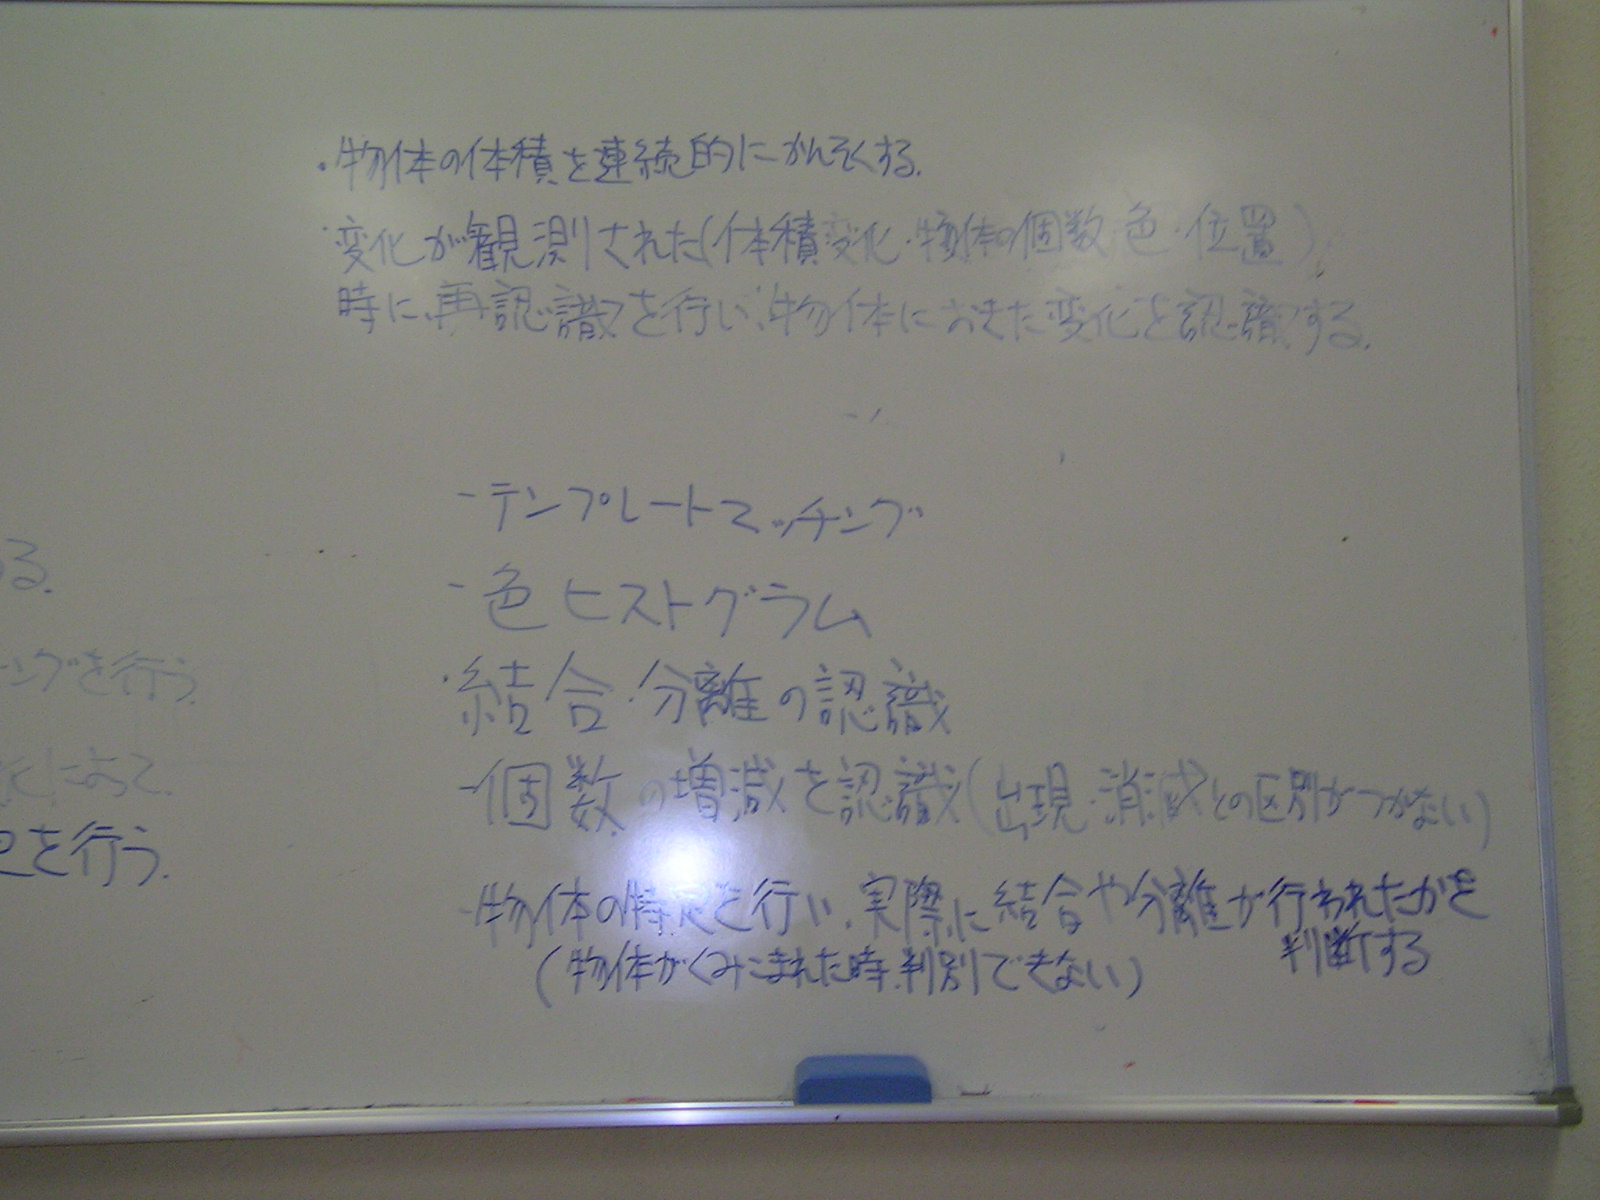 ・物体の体積を連続的にかんそくする.
・変化が観測された(体積変化・物体の個数・色・位置)
時に、再認識を行い、物体におきた変化を認識する.
-テンプレートマッチング
る.
-色ヒストグラム
・結合・分離の認識
ングを行う.
-個数の増減を認識(出現・消滅との区別がつかない)
によって.
を行う.
-物体の特定を行い、実際に結合や分離が行われたかを
判断する
(物体がくみこまれた時、判別できない)